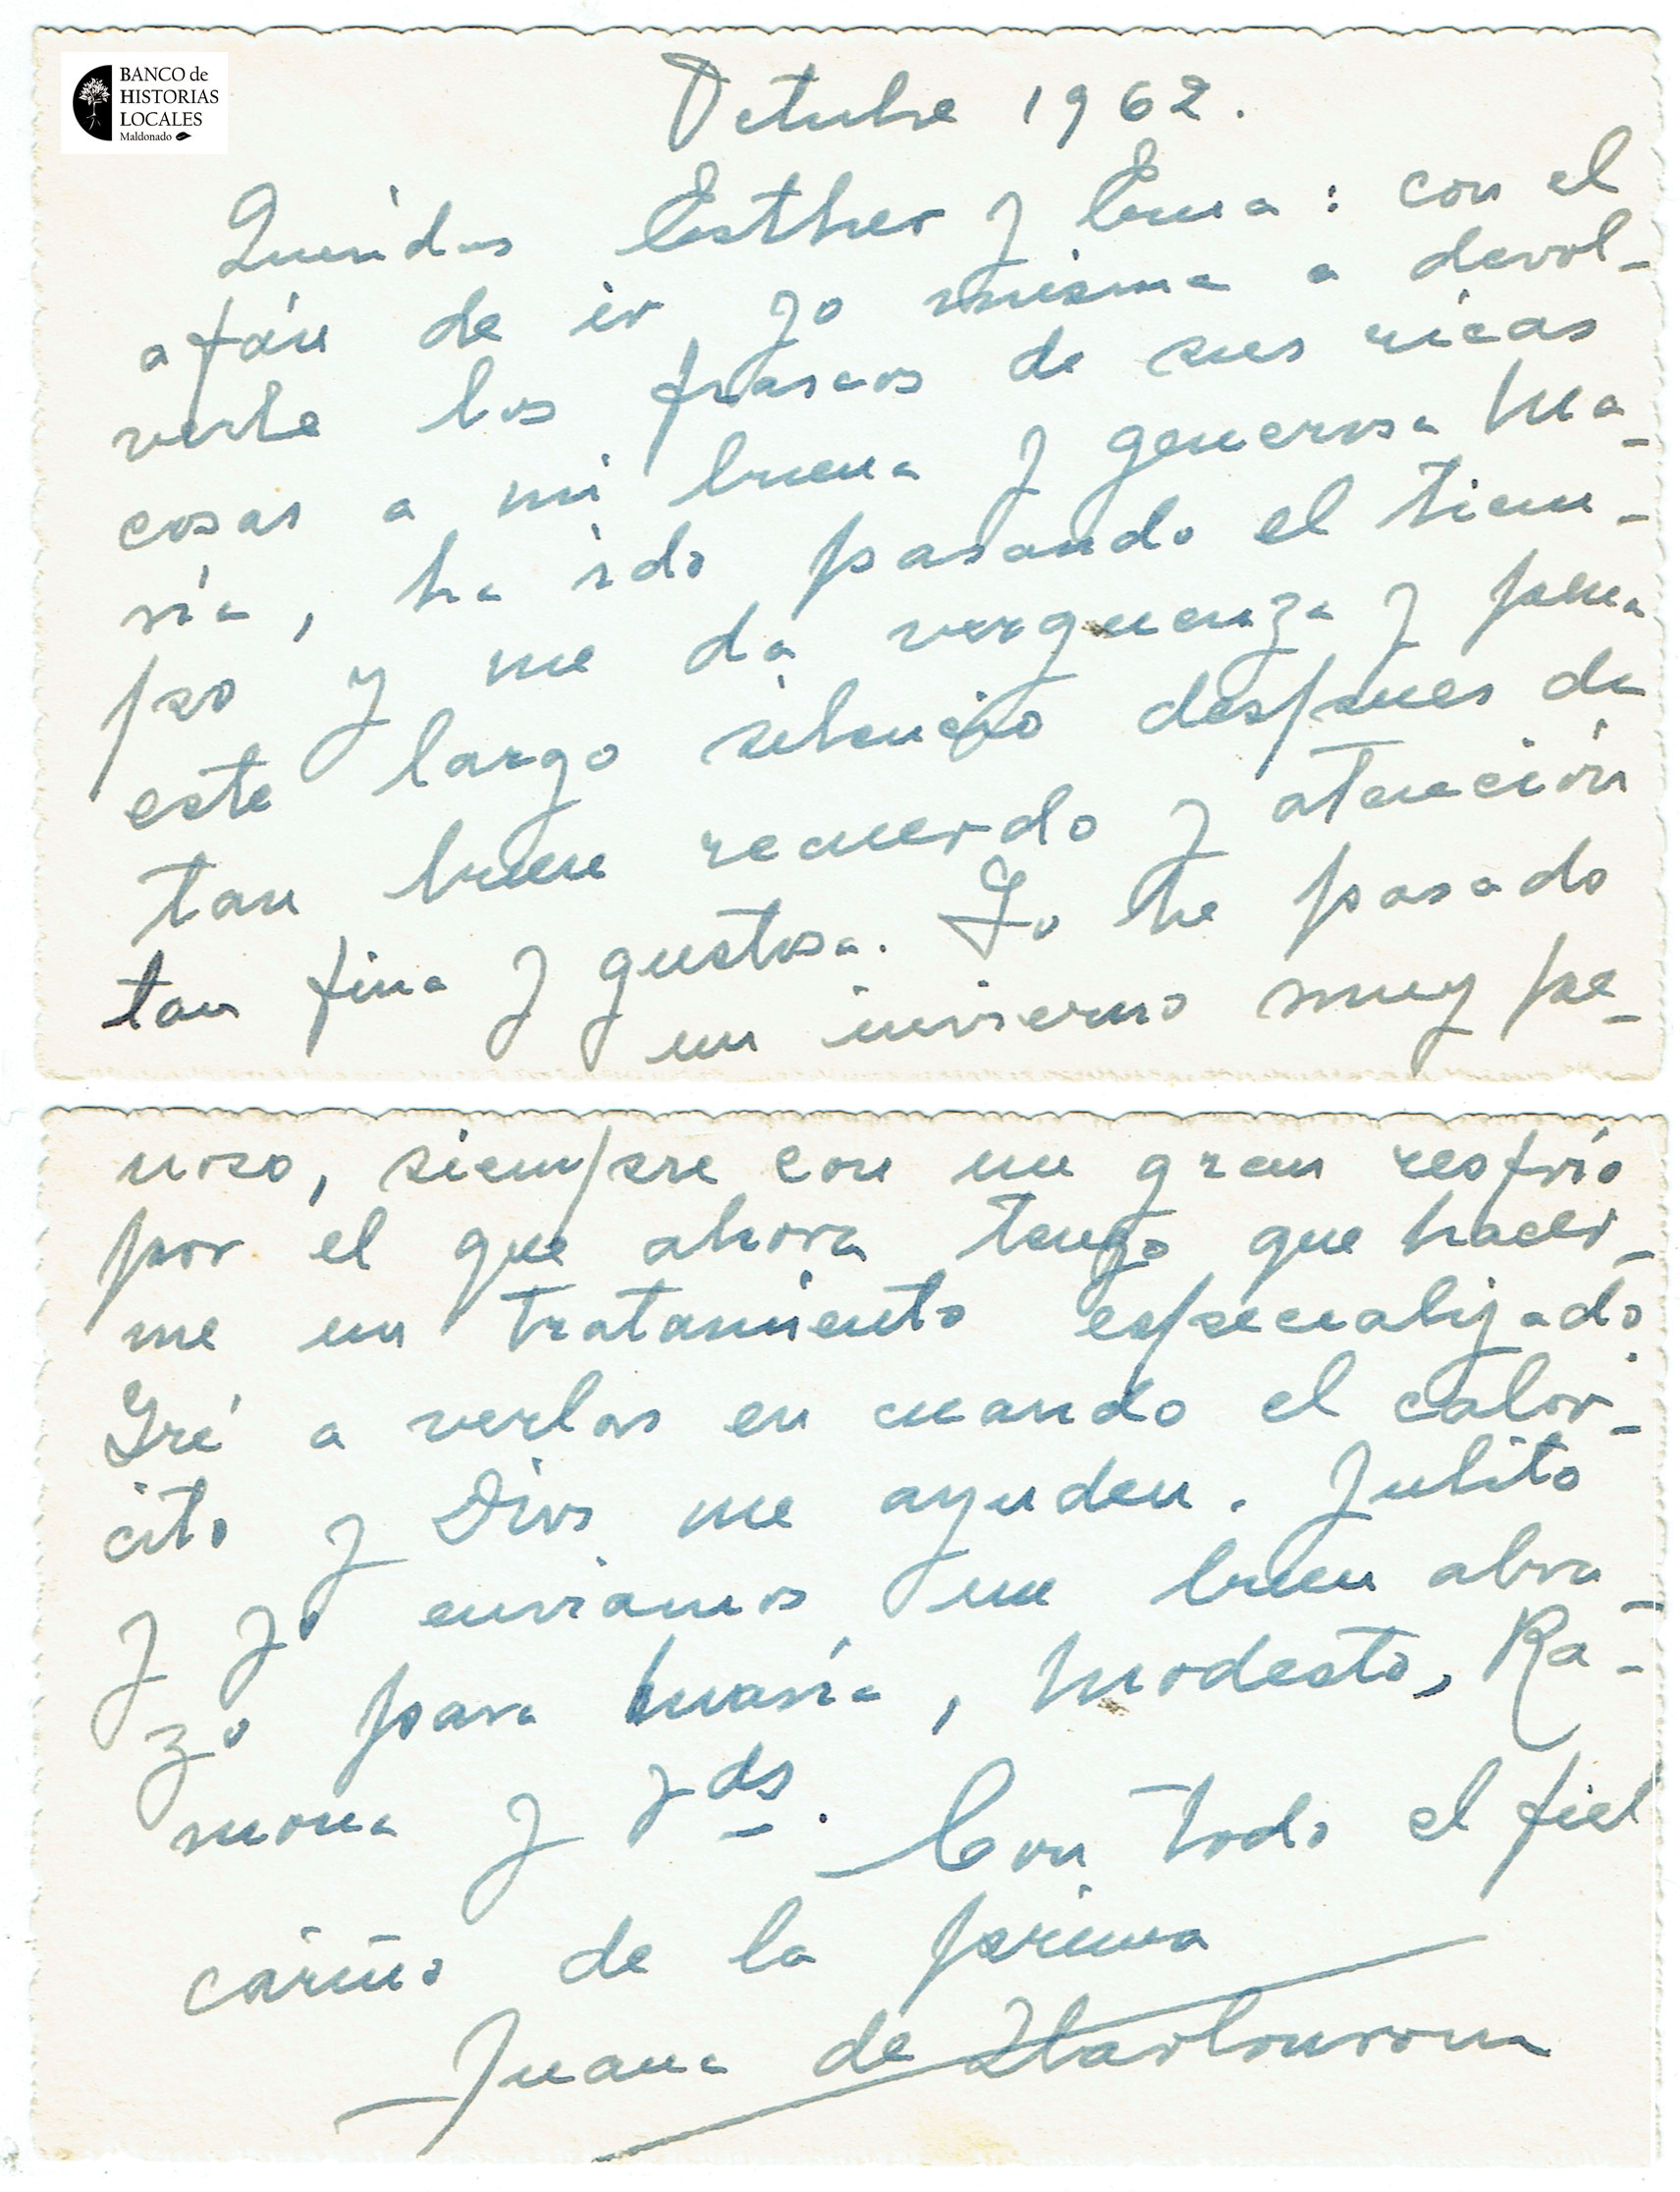 BANCO de
HISTORIAS
LOCALES
Maldonado
Octubre 1962.
Queridas Esther y Ema: con el
afán de ir yo misma a devol-
verle los frascos de sus ricas
cosas a mi buena y generosa Ma-
ría, ha ido pasando el tiem-
po y me da verguenza y pena
este largo silencio despues de
tan buen recuerdo y atención
tan fina y gustosa. Yo he pasado
un invierno muy pe-
noso, siempre con un gran resfrío
por el que ahora tengo que hacer-
me un tratamiento especializado.
Iré a verlas en cuando el calor-
cito y Dios me ayuden. Julito
y yo enviamos un buen abra-
zo para María, Modesto, Ra-
mona y Uds. Con todo el fiel
cariño de la prima
Juana de Ibarbourou